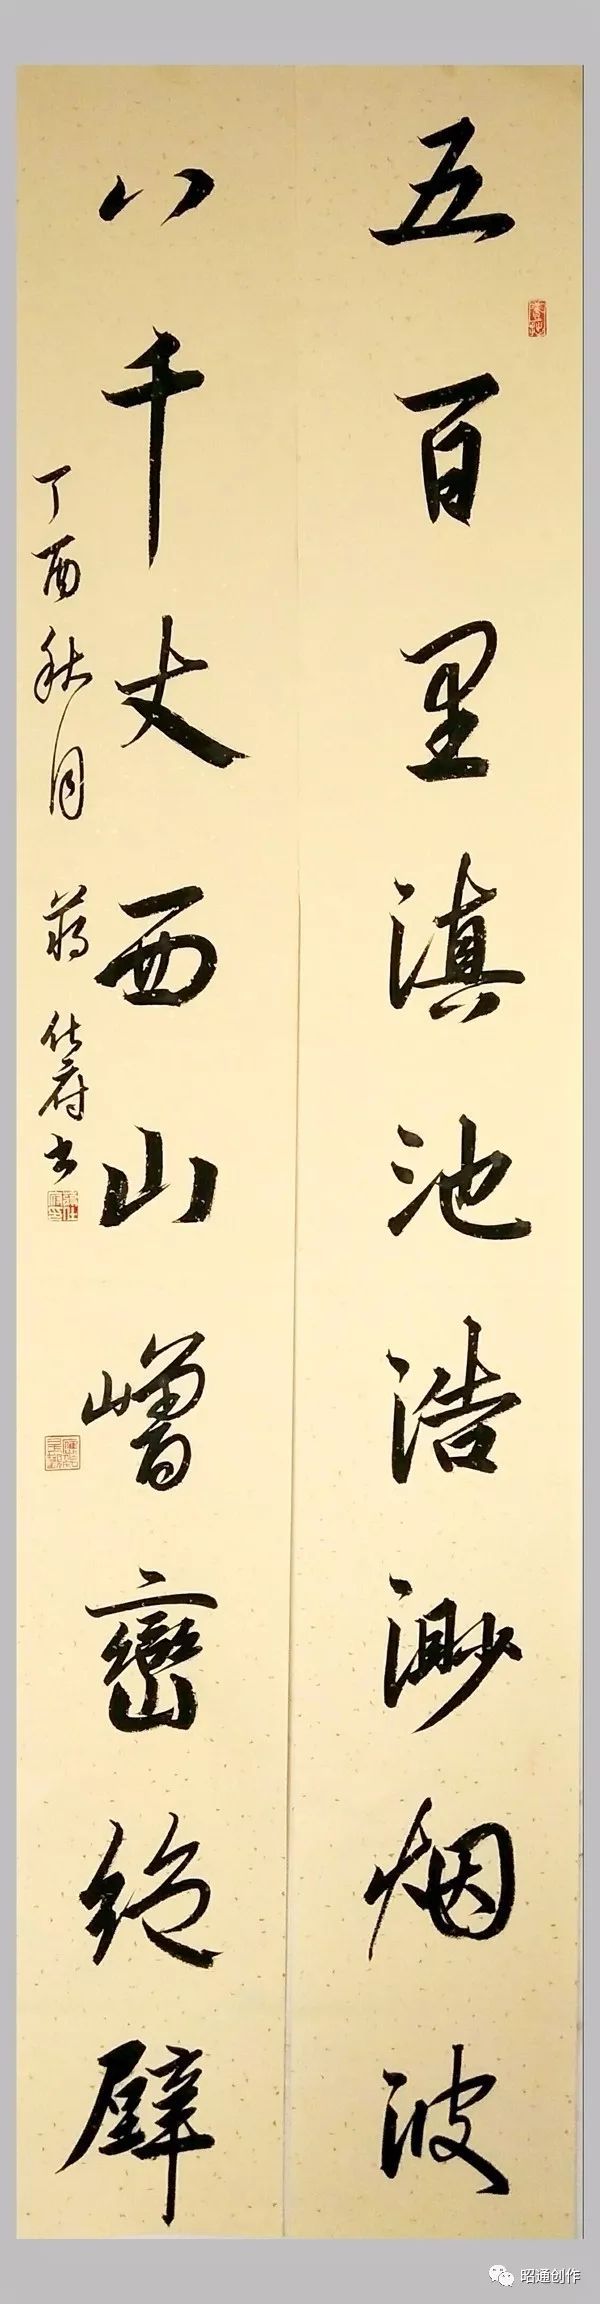 五百里滇池浩渺烟波
八千丈西山嶒巒絶壁
丁酉秋月 蒋仕府书
昭通创作